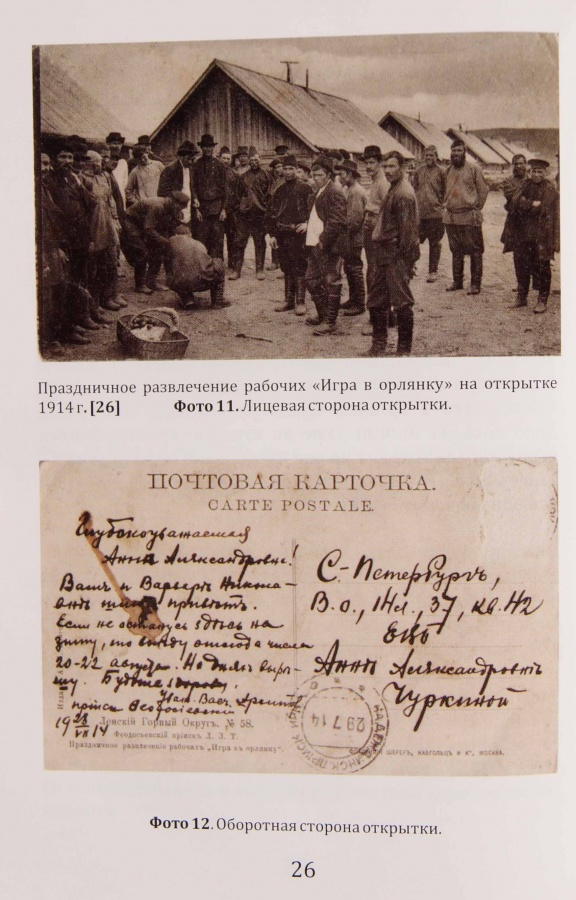 Праздничное развлечение рабочих «Игра в орлянку» на открытке
1914 г. [26] Фото 11. Лицевая сторона открытки.
ПОЧТОВАЯ КАРТОЧКА.
CARTE POSTALE.
Глубокоуважаемая
Анна Александровна!
Вамъ и Варваръ Никола-
привѣтъ.
Если не останусь здѣсь на
зиму, то выѣду отсюда числа
20-22 августа. На дняхъ
Будьте здоровы.
Иван. Вас.
пріискъ Ѳеодосіевскій
19 28/VII 14
С-Петербургъ,
В.о., 14 л., 37, кв. 42
ЕВБ
Аннѣ Александровнѣ
Чуркиной
29 7 14
Ленскій Горный Округъ. № 58.
Феодосьевскій пріискъ Л. З. Т.
Праздничное развлеченіе рабочихъ „Игра въ орлянку".
ШЕРЕРЪ, НАБГОЛЬЦЪ И Кº, МОСКВА.
Фото 12. Оборотная сторона открытки.
26